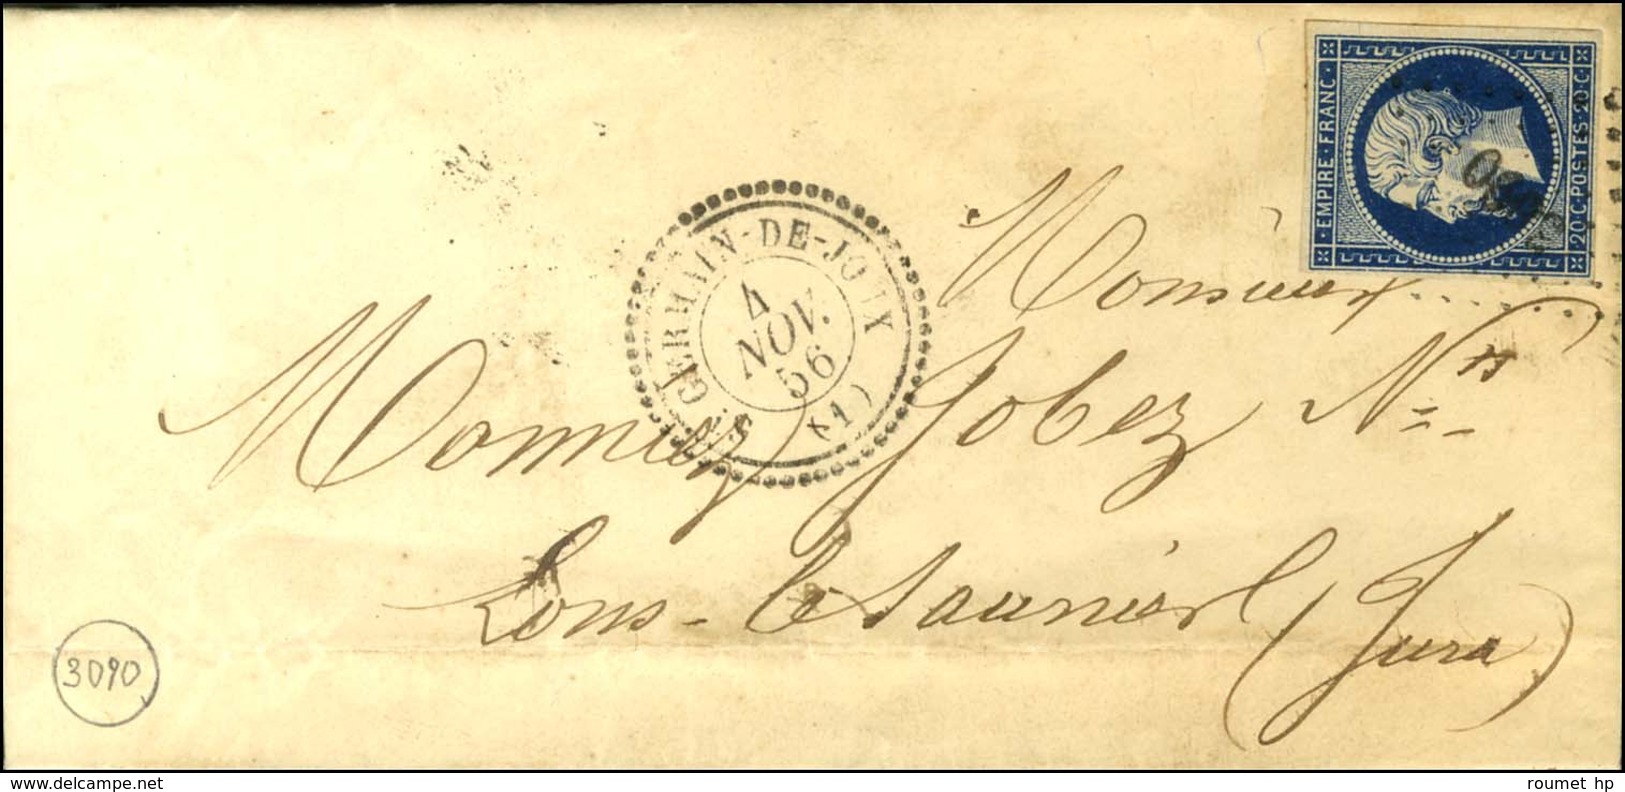 EMPIRE · FRANC ·
20 · C · POSTES · 20 · C
ST GERMAIN-DE-JOUX
4
NOV.
56
(1)
Monsieur
Monnier Jobez Nts
Lons-le Saunier (Jura)
3090
roumet hp